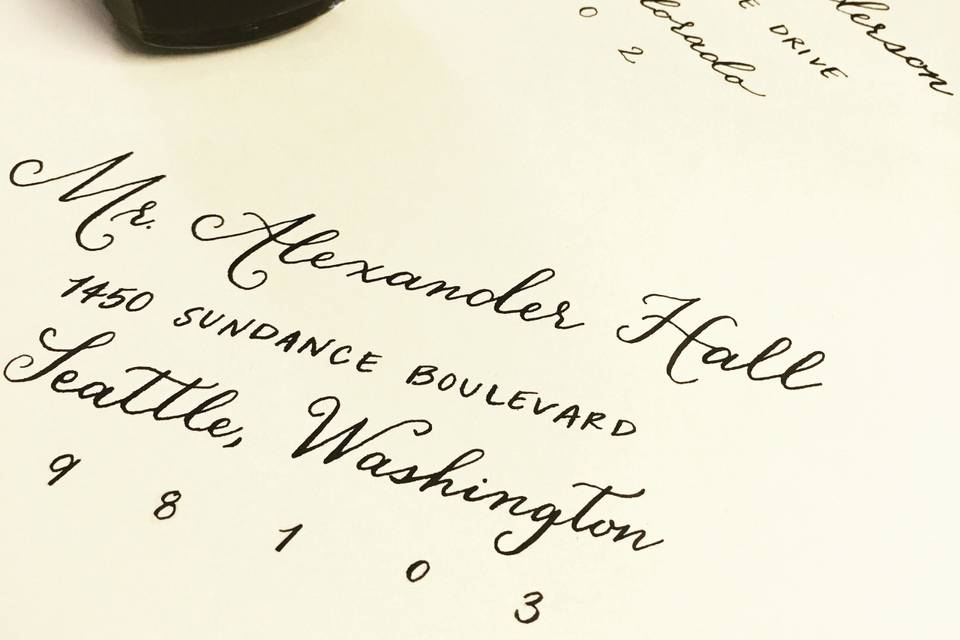 derson
E DRIVE
lorado
0 2
Mr. Alexander Hall
1450 SUNDANCE BOULEVARD
Seattle, Washington
9 8 1 0 3